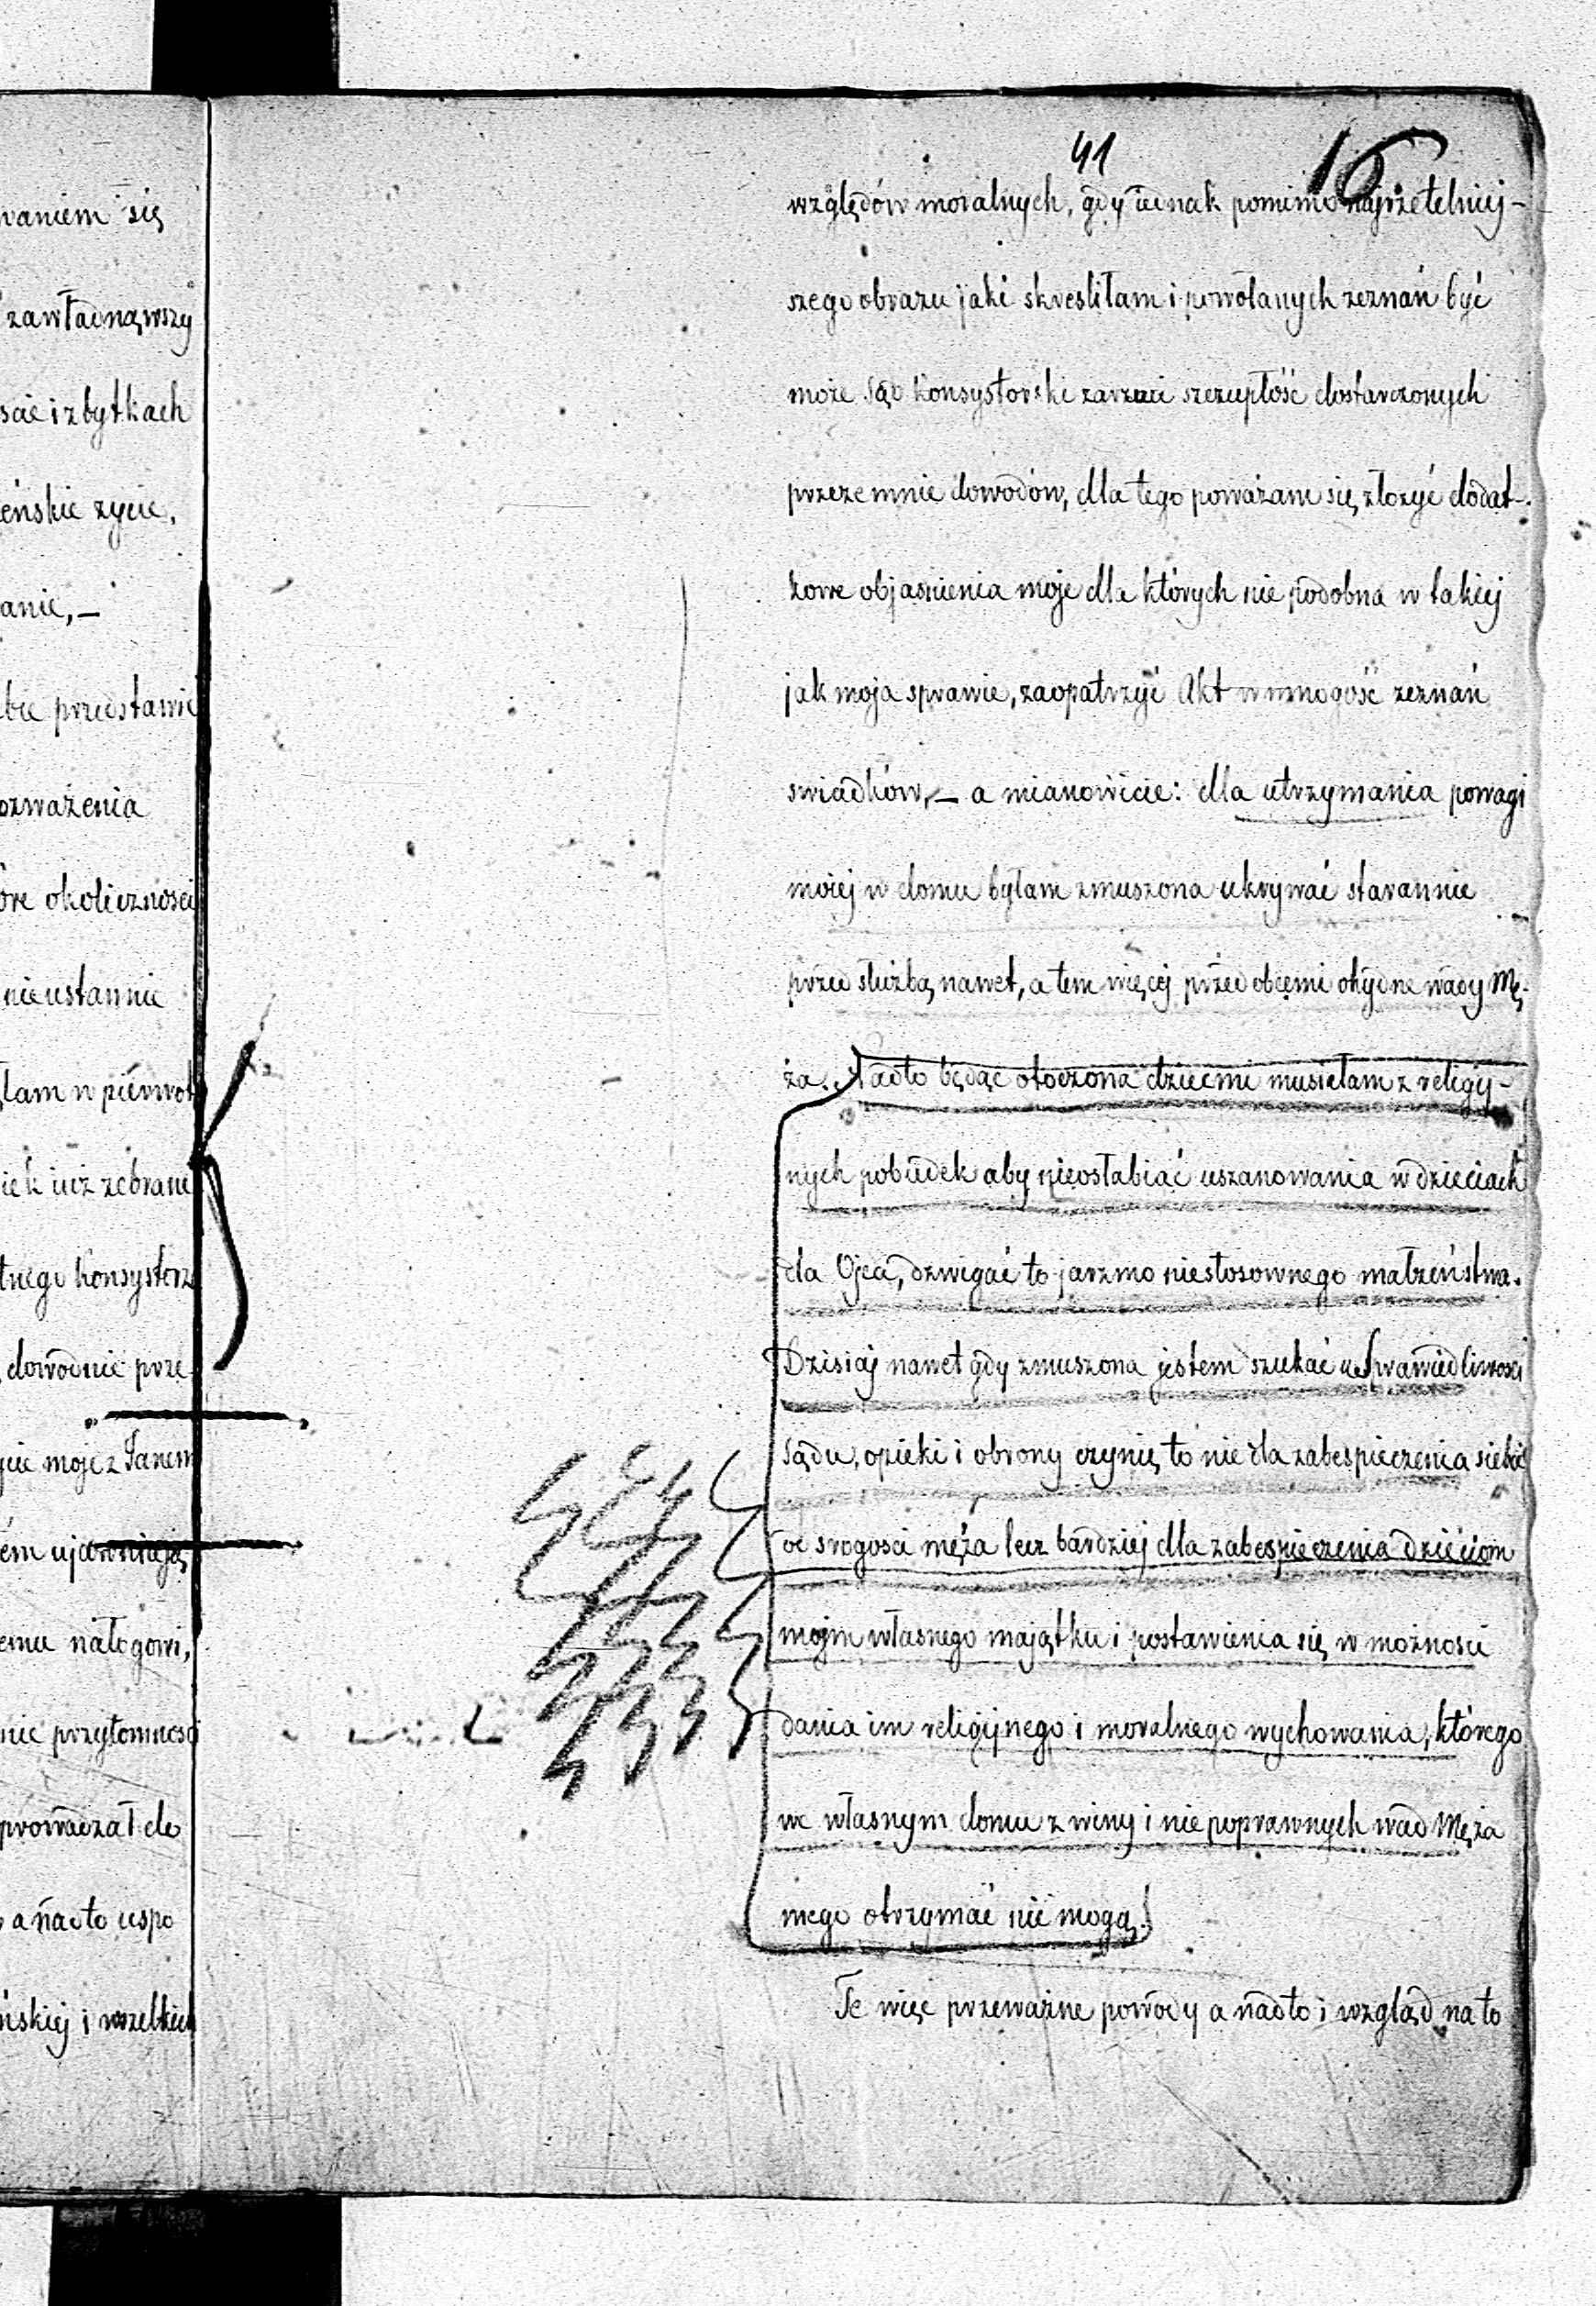 waniem się
zawładnąwszy
scie i zbytkach
eńskie zycie,
anie, –
bie przedstawić
ozważenia
óre okoliczności
nieustannie
łam w piérwot
iek iuż zebrane
tnego Konsystorz
dowodnie prze
cie moje z Janem
ém ujawniają
emu nałogowi,
nie przytomności
prowadzał do
a nadto uspo
ńskiej i wszelkich
41
16
względów moralnych, gdy iednak pomimo najrzetelniej-
szego obrazu jaki skresliłam i powołanych zeznań być
może Sąd Konsystorski zarzuci szczupłość dostarczonych
przezemnie dowodów, dla tego poważam się złożyć dodat-
kowe objasnienia moje dla których nie podobna w takiej
jak moja sprawie, zaopatrzyć Akt w mnogość zeznań
swiadków, – a mianowicie: dla utrzymania powagi
mojej w domu byłam zmuszona ukrywać starannie
przed służbą nawet, a tem więcej przed obcemi ohydne wady Mę-
ża. Nadto będąc otoczona dziećmi musiałam z religij-
nych pobudek aby nieosłabiać uszanowania w dzieciach
dla Ojca, dzwigać to jarzmo niestosownego małżeństwa.
Dzisiaj nawet gdy zmuszona jestem szukać u Sprawiedliwości
Sądu, opieki i obrony czynię to nie dla zabespieczenia siebie
od srogości męża lecz bardziej dla zabespieczenia dzieciom
mojm własnego majątku i postawienia się w możności
dania im religijnego i moralnego wychowania, którego
we własnym domu z winy i niepoprawnych wad Męża
mego otrzymać nie mogą.
Te więc przeważne powody a nadto i wzgląd na to